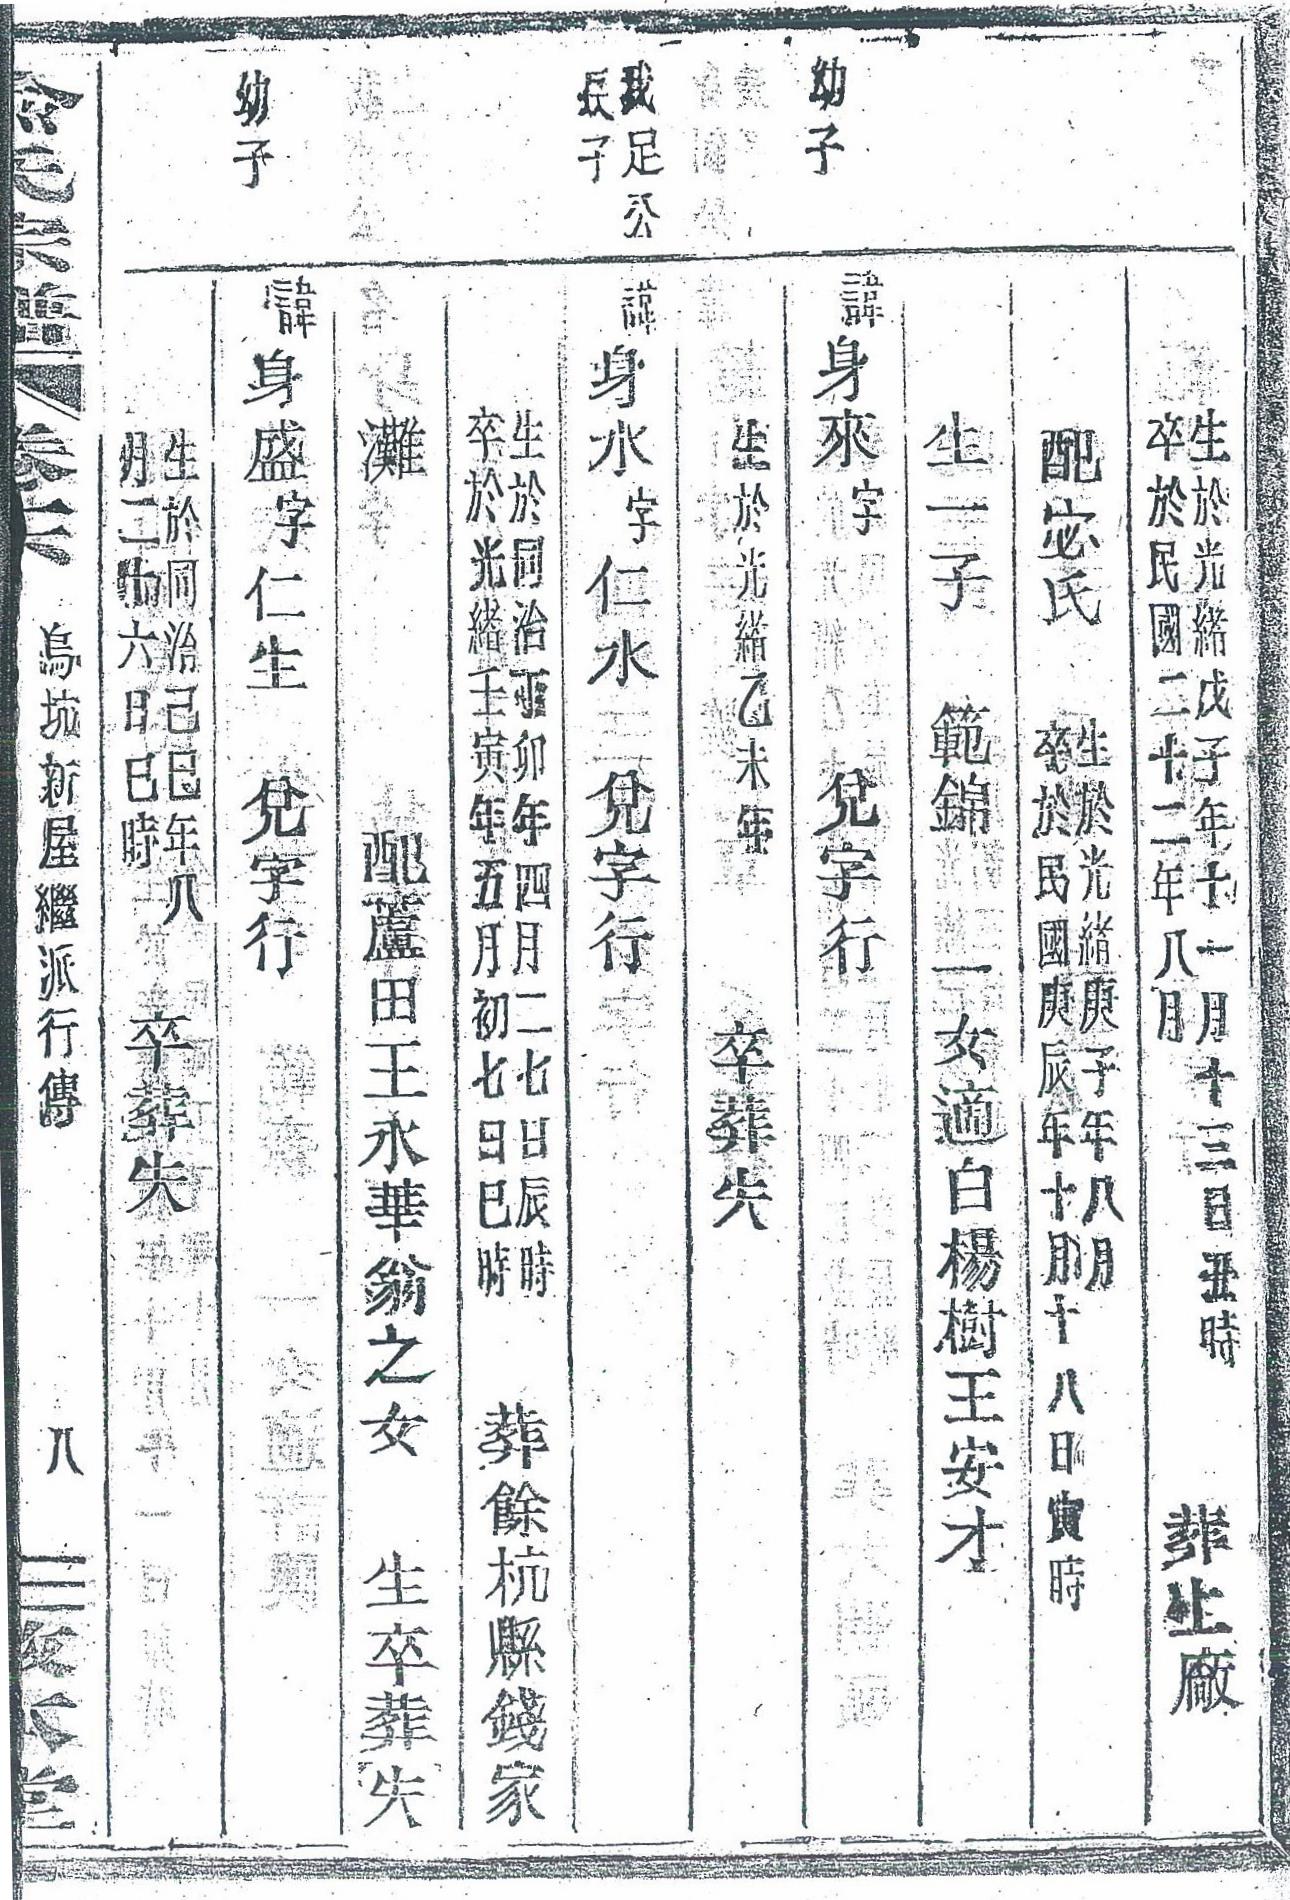 生於光緒戊子年十一月十三日丑時
卒於民國二十二年八月
葬生廠
配宓氏
生於光緒庚子年八月
卒於民國庚辰年十月十八日寅時
生一子 範錦 一女適白楊樹王安才
幼子
諱身來字 兌字行
生於光緒乙未年 卒葬失
我足公
長子
諱身水字仁水 兌字行
生於同治丁卯年四月二七日辰時
卒於光緒壬寅年五月初七日巳時
葬餘杭縣錢家
灘 配蘆田王永華翁之女 生卒葬失
幼子
諱身盛字仁生 兌字行
生於同治己巳年八
月二十六日巳時
卒葬失
卷六 烏坑新屋繼派行傳 八